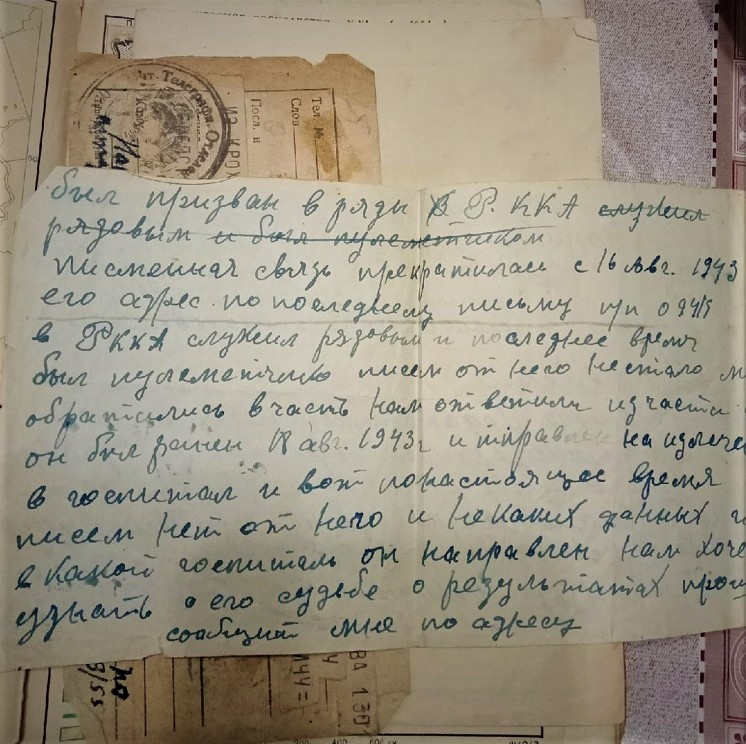 Тел. №
Слов
Посл. в
чт. Телеграфн. Отделен
ИЗ КРОХ
был призван в ряды В Р.ККА служил
рядовым и был пулеметчиком
писменная связь прекратилась с 16 Авг. 1943
его адрес по последнему письму п/п
в РККА служил рядовым и последнее время
был пулеметчико писем от него нестало
обратились в часть нам ответили из части
он был ранен авг. 1943г и тправлен на излече
в госпитал и вот понастоящее время
писем нет от него и неКаких данных
в какой госпиталь он направлен нам хоче
узнать о его судьбе о результатах прош
сообщит мне по адресу
ВА 130
ИЧУ=